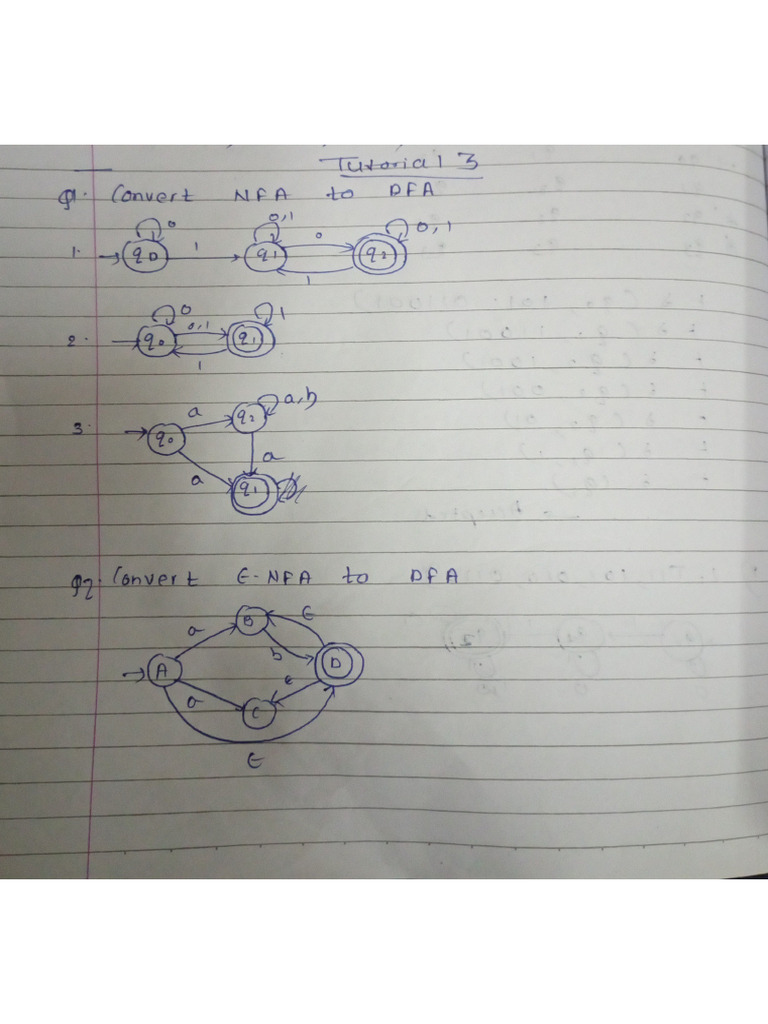 Tutorial 3
Q1. Convert NFA to DFA
1.
0
0,1
0,1
q0
1
q1
0
q2
1
2.
0
1
q0
0,1
q1
1
3.
a
q2
a,b
q0
a
a
q1
Q2. Convert E-NFA to DFA
B
E
a
b
A
D
a
E
C
E